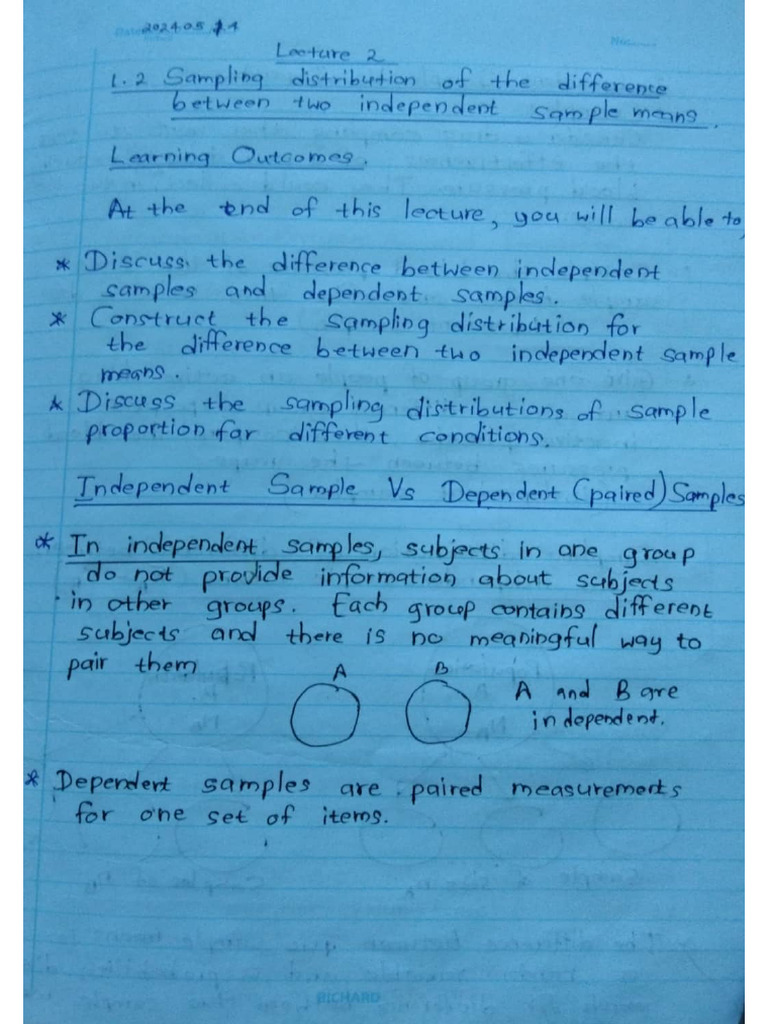 Date 2024.05.14
No:
Lecture 2
1.2 Sampling distribution of the difference
between two independent sample means.
Learning Outcomes.
At the end of this lecture, you will be able to,
* Discuss the difference between independent
samples and dependent samples.
* Construct the sampling distribution for
the difference between two independent sample
means.
* Discuss the sampling distributions of sample
proportion for different conditions.
Independent Sample Vs Dependent (paired) Samples
* In independent samples, subjects in one group
do not provide information about subjects
in other groups. Each group contains different
subjects and there is no meaningful way to
pair them
A B A and B are
independent.
* Dependent samples are paired measurements
for one set of items.
RICHARD